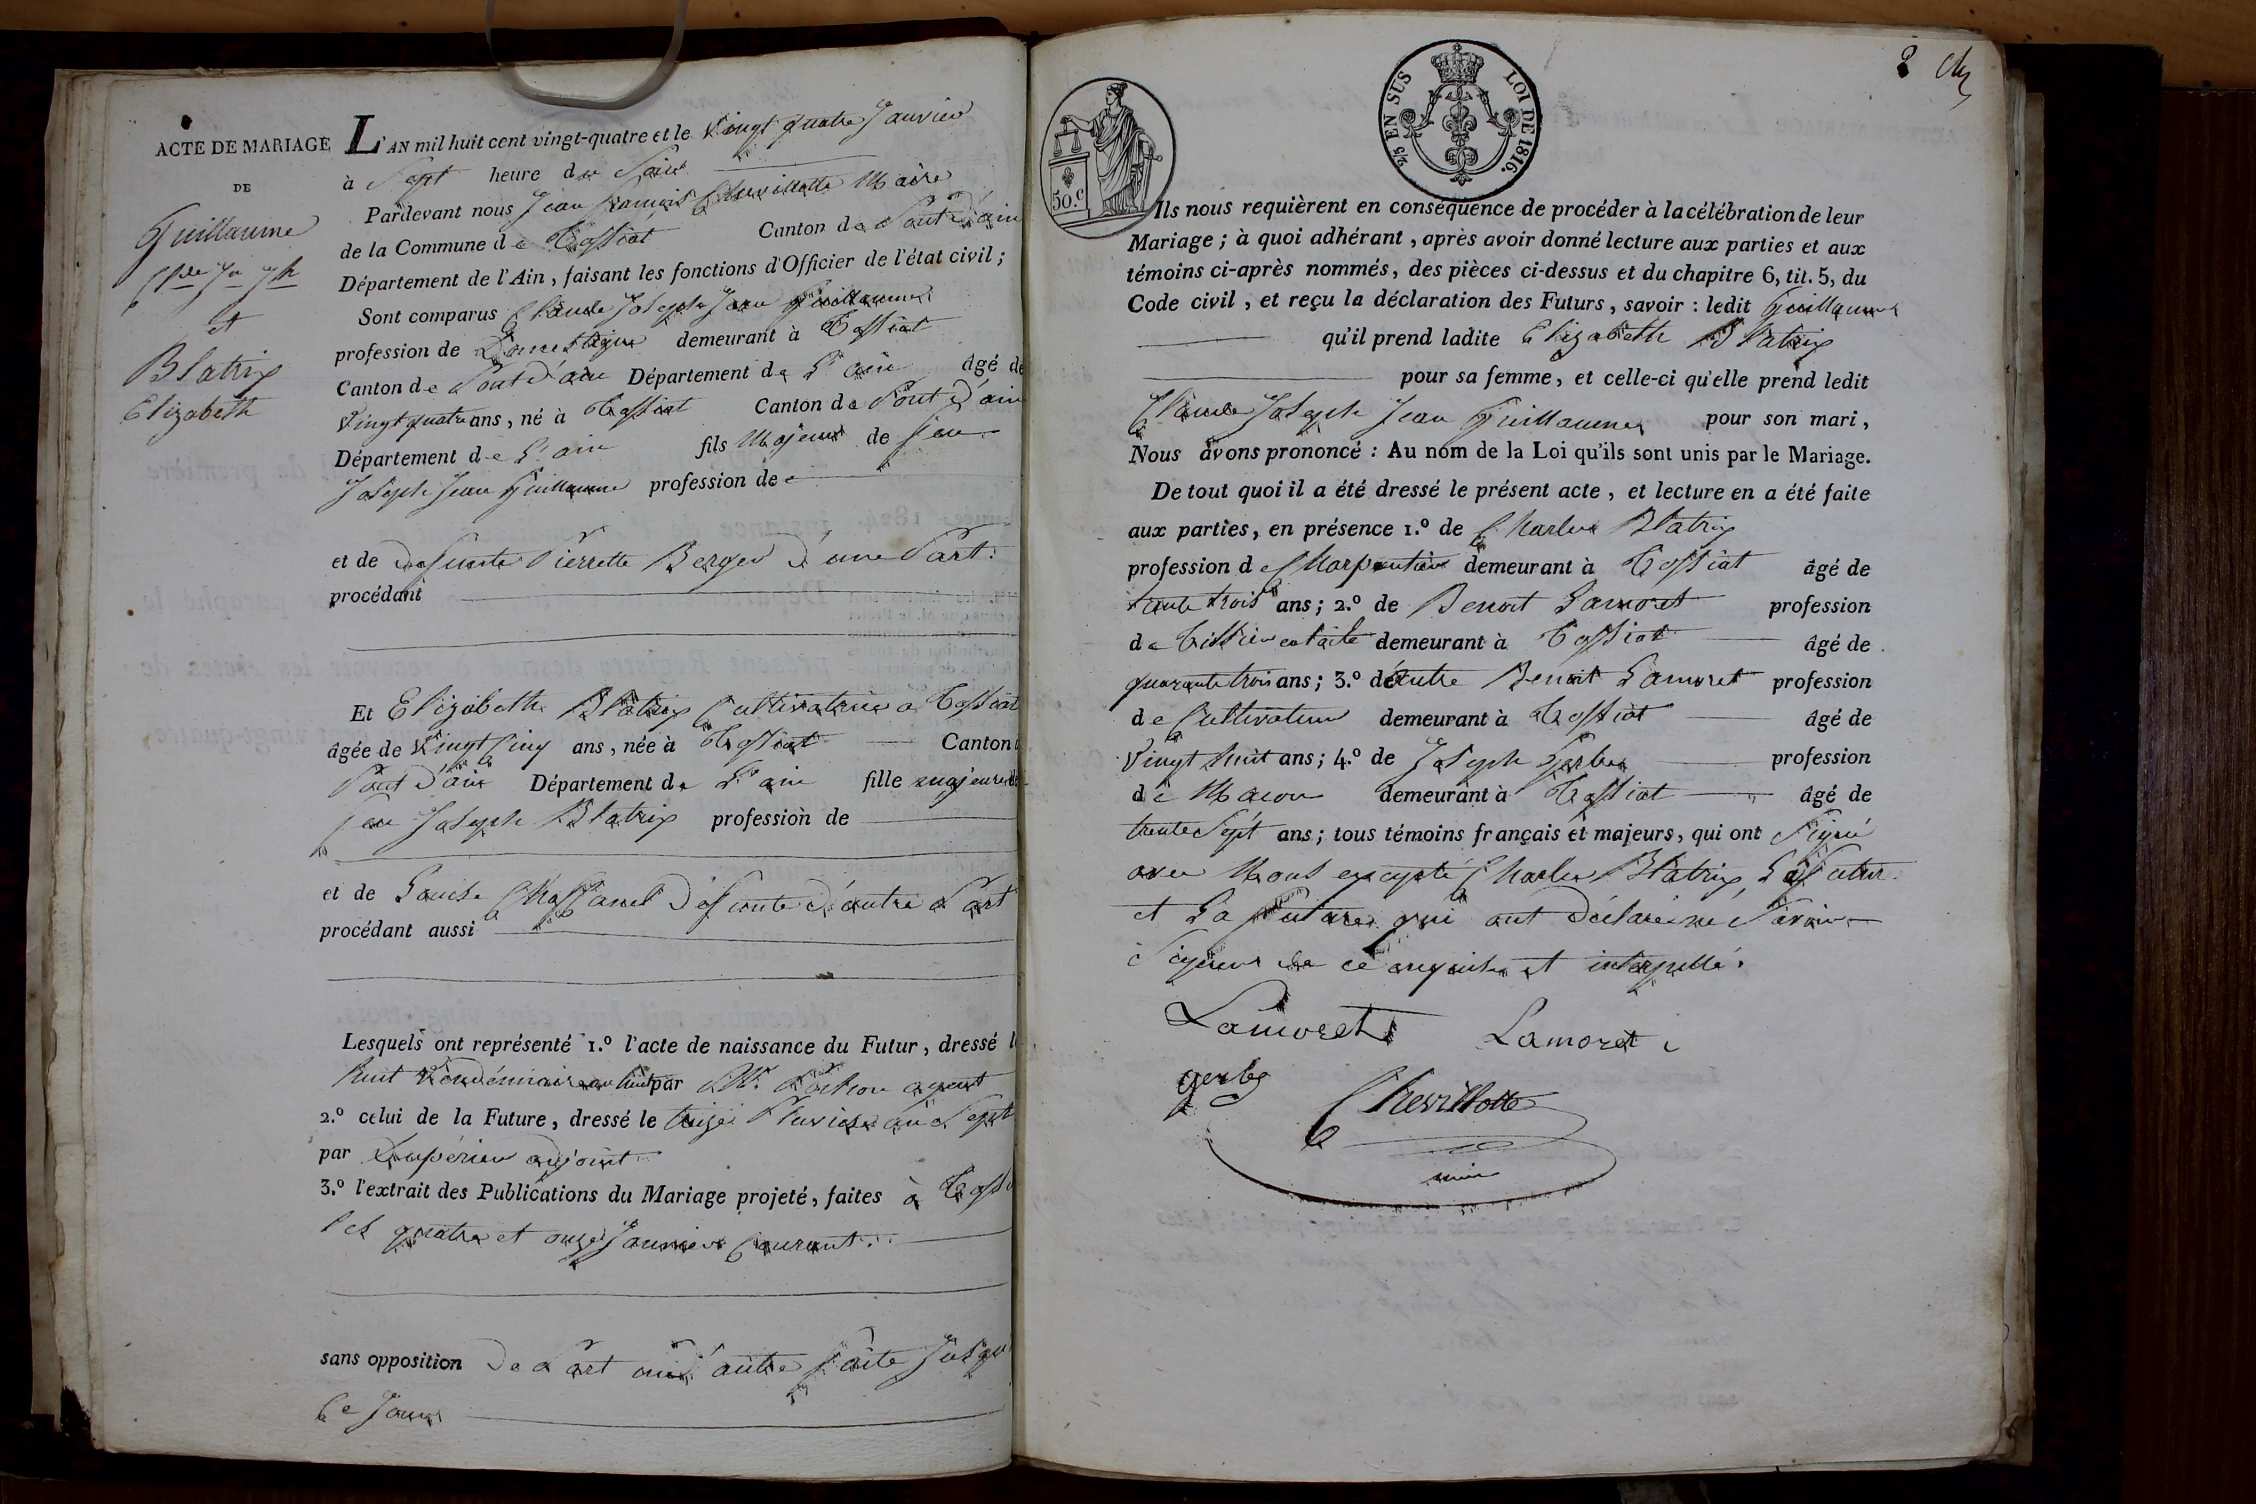 ACTE DE MARIAGE
DE
Guillaume
Cl.de Jn Jph
et
Blatrix
Elizabeth
L'AN mil huit cent vingt-quatre et le vingt quatre Janvier
à Sept heure du Soir
Pardevant nous Jean François Chevillotte Maire
de la Commune de Tossiat Canton de Pont d'ain
Département de l'Ain, faisant les fonctions d'Officier de l'état civil;
Sont comparus Claude Joseph Jean Guillaume
profession de Domestique demeurant à Tossiat
Canton de Pont d'ain Département de L'ain âgé de
Vingt quatre ans, né à Tossiat Canton de Pont d'ain
Département de L'ain fils Majeur de feu
Joseph Jean Guillaume profession de
et de defunte Pierrette Berger d'une Part.
procédant
Et Elizabeth Blatrix Cultivatrice a Tossiat
âgée de Vingt Cinq ans, née à Tossiat Canton
Pont d'ain Département de L'ain fille majeure de
feu Joseph Blatrix profession de
et de Louise Defunte d'autre Part
procédant aussi
Lesquels ont représenté 1.º l'acte de naissance du Futur, dressé le
huit Vendémiaire an huit par agent
2.º celui de la Future, dressé le Pluviose an Sept
par adjoint
3.º l'extrait des Publications du Mariage projeté, faites à Toss
les quatre et onze Janvier Courant.
sans opposition De Part ni d'autre faite Jusqu'
Ce Jour
2
50.C
2/5 EN SUS
LOI DE 1816.
Ils nous requièrent en conséquence de procéder à la célébration de leur
Mariage; à quoi adhérant, après avoir donné lecture aux parties et aux
témoins ci-après nommés, des pièces ci-dessus et du chapitre 6, tit. 5, du
Code civil, et reçu la déclaration des Futurs, savoir: ledit Guillaume
qu'il prend ladite Elizabeth Blatrix
pour sa femme, et celle-ci qu'elle prend ledit
Claude Joseph Jean Guillaume pour son mari,
Nous avons prononcé: Au nom de la Loi qu'ils sont unis par le Mariage.
De tout quoi il a été dressé le présent acte, et lecture en a été faite
aux parties, en présence 1.º de Charles Blatrix
profession de Charpentier demeurant à Tossiat âgé de
trente trois ans; 2.º de Benoit Lamoret profession
de Tissier en toile demeurant à Tossiat âgé de
quarante trois ans; 3.º d'autre Benoit Lamoret profession
de Cultivateur demeurant à Tossiat âgé de
Vingt huit ans; 4.º de Joseph Gerbe profession
de Macon demeurant à Tossiat âgé de
trente Sept ans; tous témoins français et majeurs, qui ont Signé
avec Nous excepté Charles Blatrix, Le futur
et La Future qui ont déclaré ne Savoir
Signer de ce enquis et interpellé.
Lamoret Lamoret
gerbe
Chevillotte